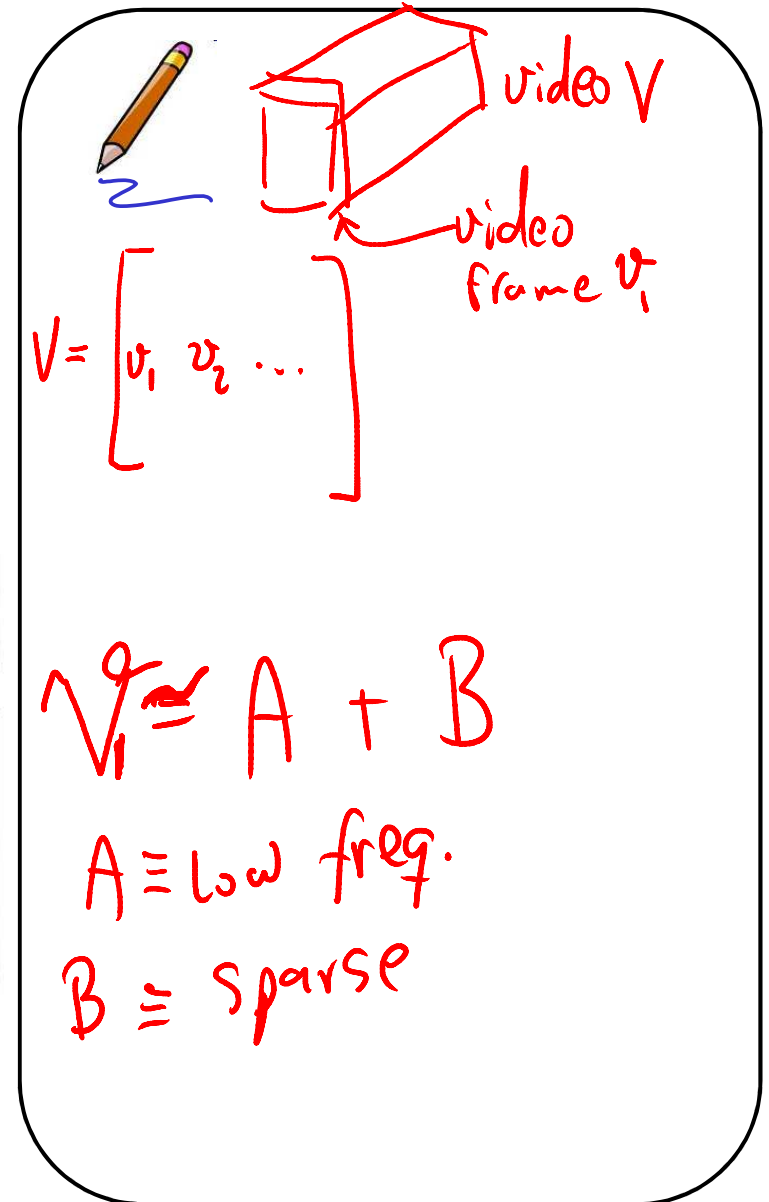 video V
video
frame v₁
V = [v₁ v₂ ...]
V₁ ≃ A + B
A ≡ low freq.
B ≡ sparse